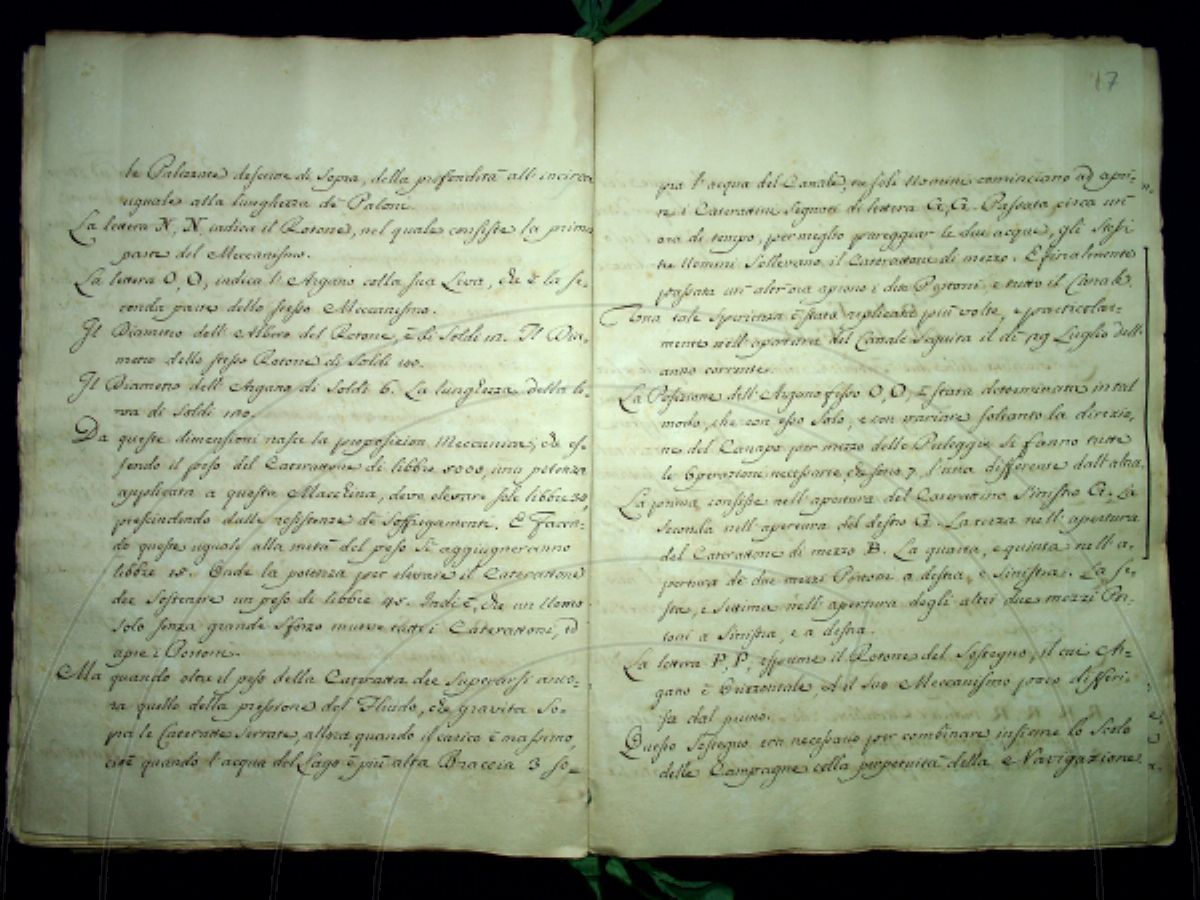 le Palizzate descritte di Sopra, della profondità all'incirca
uguale alla lunghezza de' Paloni.
La lettera N, N, indica il Rotone, nel quale consiste la prima
parte del Meccanismo.
La lettera O, O, indica l'Argano colla sua Leva, che è la se-
conda parte dello stesso Meccanismo.
Il Diametro dell'Albero del Rotone, è di Soldi 12. Il Dia-
metro dello stesso Rotone di Soldi
Il Diametro dell'Argano di Soldi 6. La lunghezza della le-
va di Soldi
Da queste dimensioni nasce la proposizion Meccanica, che es-
sendo il peso del Caterattone di libbre una potenza
applicata a questa Macchina, deve elevare sole libbre
prescindendo dalle resistenze di Soffregamento. E Facen-
do queste uguali alla metà del peso Si aggiugneranno
libbre 15. Onde la potenza per elevare il Caterattone
dee Sostenere un peso di libbre 45. Indi è, che un Uomo
solo senza grande Sforzo muove tutti i Caterattoni, ed
apre i Portoni.
Ma quando oltre il peso della Cateratta dee Superarsi anco-
ra quello della pressione del Fluido, che gravita so-
pra le Cateratte Serrate, allora quando il carico è massimo,
cioè quando l'acqua del Lago è più alta Braccia 3 so-
17
pra l'acqua del Canale, tre soli Uomini cominciano ad apri-
re i Caterattini Segnati di lettera G, G. Passata circa un'
ora di tempo, per meglio pareggiar le due acque, gli Stessi
tre Uomini Sollevano il Caterattone di mezzo. E finalmente
passata un'altr'ora aprono i due Portoni, e tutto il Canale.
Una tale Sperienza è stata replicata più volte, e particolar-
mente nell'apertura del Canale Seguita il dì 29 Luglio dell'
anno corrente.
La Posizione dell'Argano fisso O, O, è stata determinata in tal
modo, che con esso Solo, e con variare soltanto la direzio-
ne del Canapo per mezzo delle Pulegge Si fanno tutte
le Operazioni necessarie, che sono 7. l'una differente dall'altra.
La prima consiste nell'apertura del Caterattino Sinistro G. La
Seconda nell'apertura del destro G. La terza nell'apertura
del Caterattone di mezzo B. La quarta, e quinta nell'a-
pertura de' due mezzi Portoni a destra, e Sinistra. La Se-
sta, e Settima nell'apertura degli altri due mezzi Por-
toni a Sinistra, e a destra.
La lettera P, P, esprime il Rotone del Sostegno, il cui Ar-
gano è Orizzontale, ed il Suo Meccanismo poco differi-
sce dal primo.
Questo Sostegno era necessario per combinare insieme lo Scolo
delle Campagne colla perpetuità della Navigazione